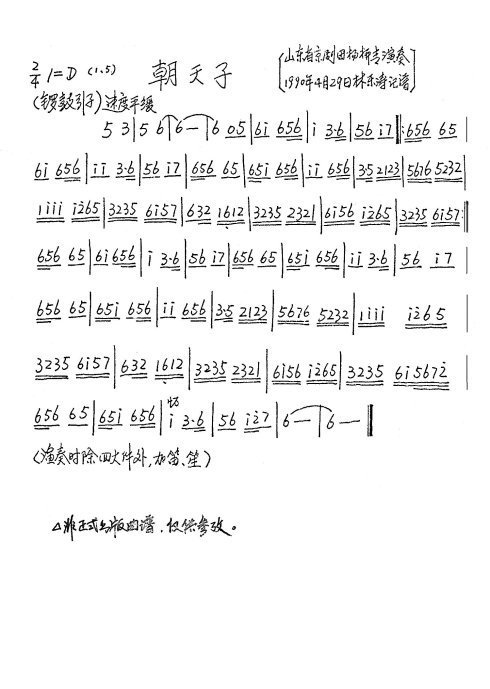 2/4 1=D (1.5) 朝天子
山东省京剧团杨桥春演奏
1990年4月29日林乐涛记谱
(锣鼓引子) 速度平缓
5 3 | 5 6 | 6 — | 6 05 | 6i 656 | i 3·6 | 56 i7 ‖: 656 65 |
6i 656 | ii 3·6 | 56 i7 | 656 65 | 65i 656 | ii 656 | 35 2123 | 5676 5232 |
1iii i265 | 3235 6i57 | 632 1612 | 3235 2321 | 6i56 i265 | 3235 6i57 :‖
656 65 | 6i 656 | i 3·6 | 56 i7 | 656 65 | 65i 656 | ii 3·6 | 56 i7 |
656 65 | 65i 656 | ii 656 | 3·5 2123 | 5676 5232 | 1iii i265 |
3235 6i57 | 632 1612 | 3235 2321 | 6i56 i265 | 3235 6i5672 |
656 65 | 65i 656 | i 3·6 | 56 i27 | 6 — | 6 — ‖
(演奏时除四大件外,加笛、笙)
△非正式出版曲谱,仅供参改。